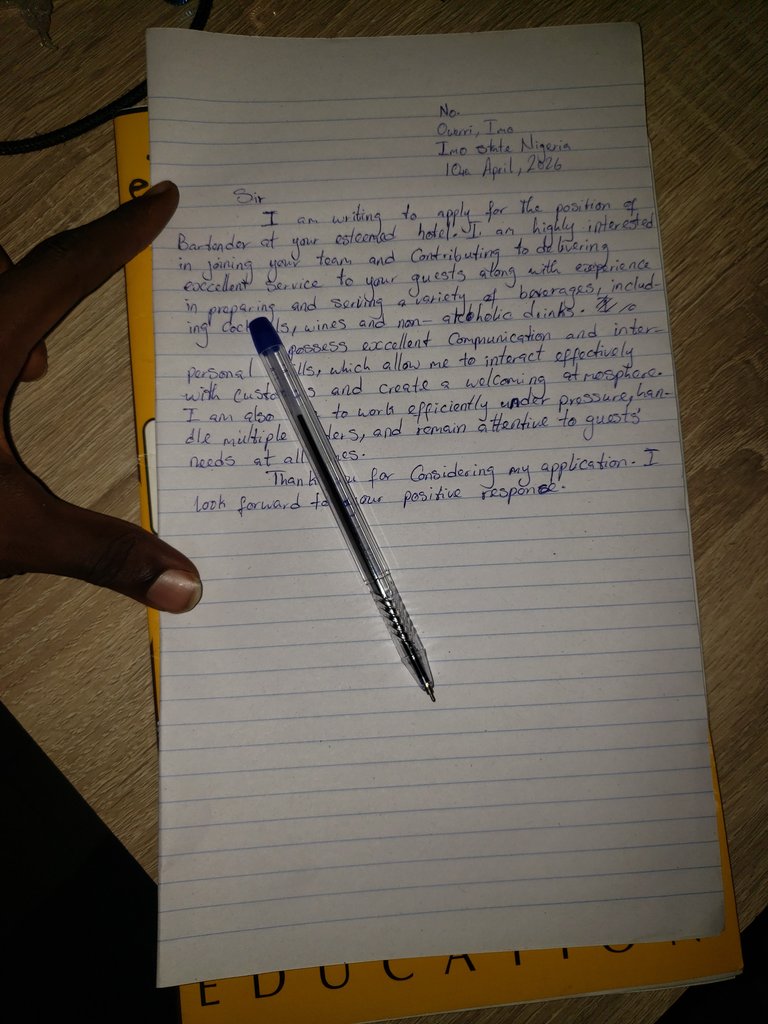 No.
Owerri, Imo
Imo state Nigeria
10th April, 2026
Sir
I am writing to apply for the position of
Bartender at your esteemed hotel. I am highly interested
in joining your team and Contributing to delivering
exccellent service to your guests along with experience
in preparing and serving a variety of beverages, includ-
ing Cock ls, wines and non-alcoholic drinks.
possess excellent Communication and inter-
personal ills, which allow me to interact effectively
with Custo s and create a welcoming atmosphere.
I am also to work efficiently under pressure, han-
dle multiple ders, and remain attentive to guests'
needs at all mes.
Thank u for Considering my application. I
look forward to your positive response.
EDUCATION